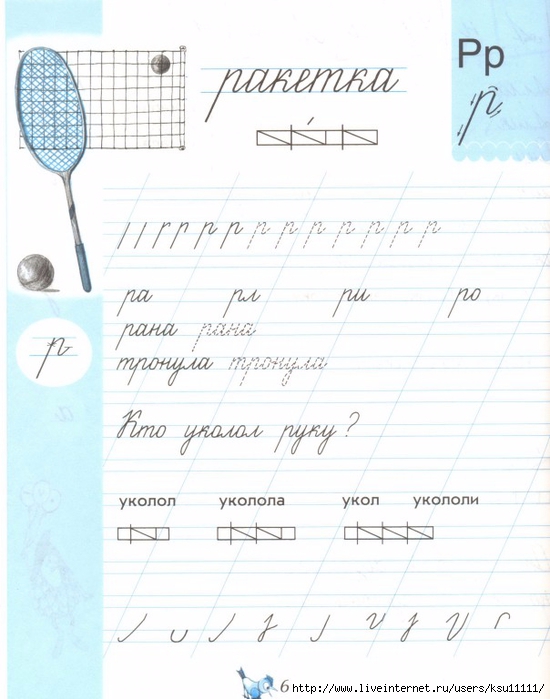 Рр
ракетка
р
р р р р р р р р р р р
ра рл ри ро
р
рана рана
тронула тронула
Кто уколол руку?
уколол уколола укол укололи
6
http://www.liveinternet.ru/users/ksu11111/